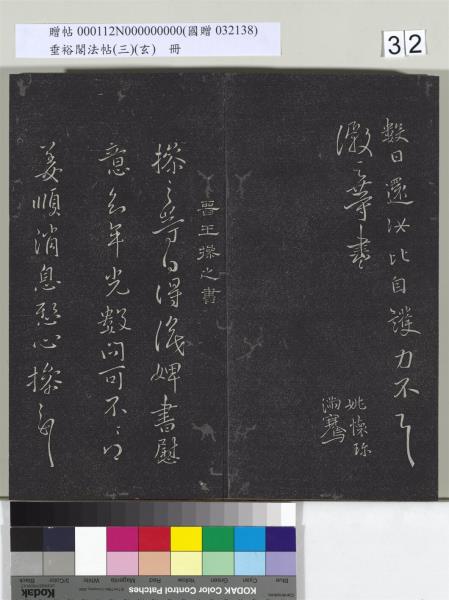 贈帖 000112N000000000(國贈 032138)
垂裕閣法帖(三)(玄) 冊
32
數日還汝比自護力不
徽之等書
姚懷珍
滿騫
晉王操之書
操之等白得識婢書慰
意年光數問可不
姜順消息懸心操之
Blue
Cyan
Green
Yellow
Red
Magenta
White
3/Color
Black
KODAK Color Control Patches